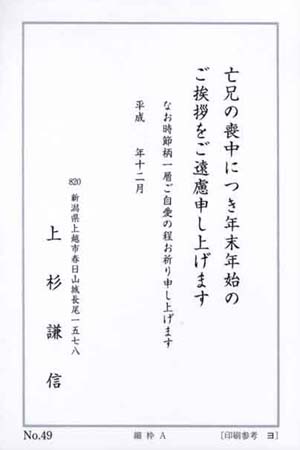 亡兄の喪中につき年末年始の
ご挨拶をご遠慮申し上げます
なお時節柄一層ご自愛の程お祈り申し上げます
平成　　年十二月
820 新潟県上越市春日山城長尾一五七八
上杉謙信
No.49
細枠 A
［印刷参考　ヨ］